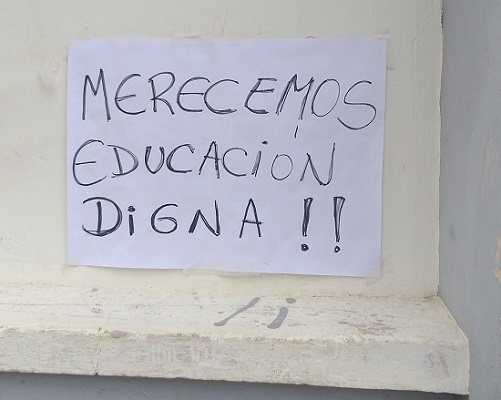 MERECEMOS
EDUCACIÓN
DiGNA !!